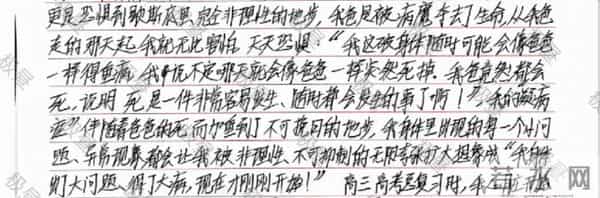 更是恐惧到歇斯底里、完全非理性的地步,我爸是被病魔夺去了生命,从我爸
走的那天起,我就无比害怕,天天恐惧:“我这破身体随时可能会像爸爸
一样得重病,我说不定哪天就会像爸爸一样突然死掉。我爸竟然都会
死,说明死是一件非常容易发生、随时都会发生的事了啊!”,我的疑病
症”伴随着爸爸的死而加重到了不可挽回的地步,我身体里出现的每一个小问
题、异常现象都会让我被非理性、不可抑制的无限夸张扩大想象成“我身
大问题、得了大病,现在才刚刚开始!” 高三高考总复习时,我